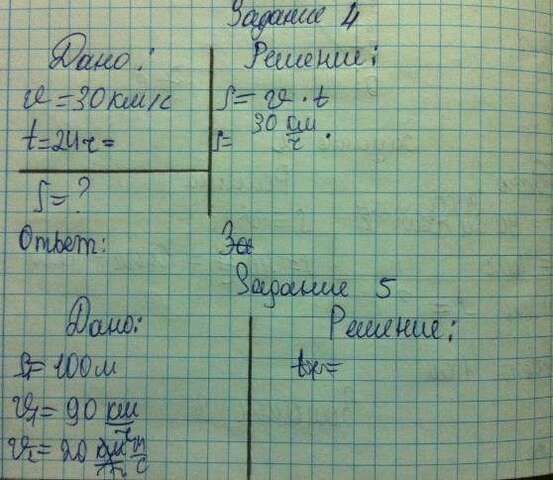 Задание 4
Дано:
v = 30 км/с
t = 24 ч =
S = ?
Решение:
S = v · t
S = 30 км/ч ·
Ответ:
Задание 5
Дано:
S = 100 м
v₁ = 90 км
v₂ = 20 м/с
Решение: